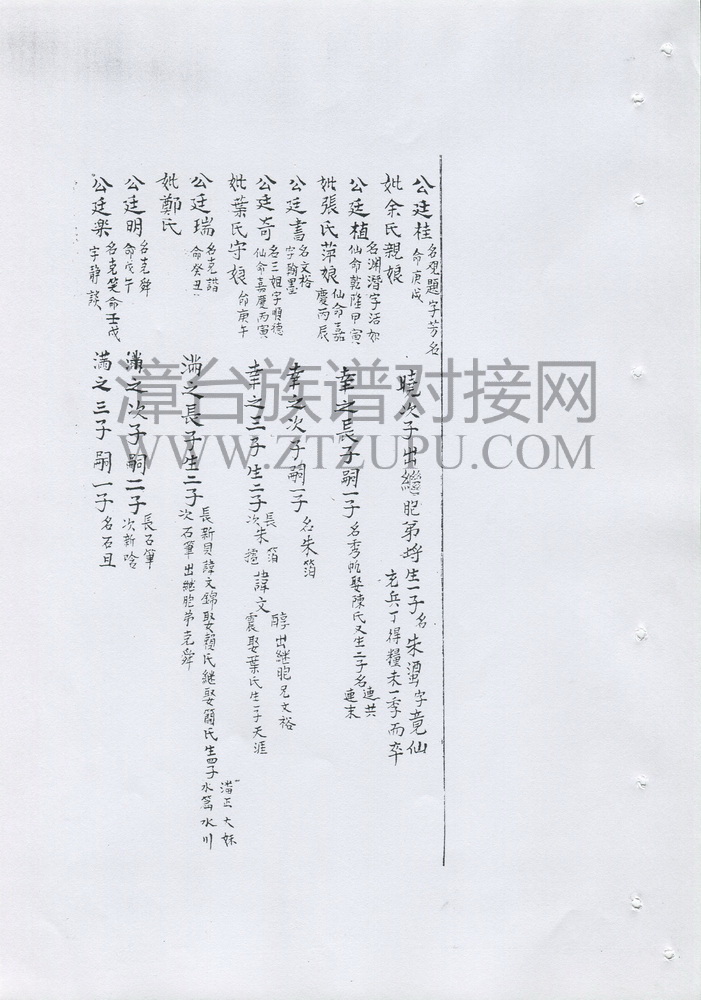 公廷桂 名覌題字芳名 命庚戌 曉次子出繼胞弟㘽生一子 名朱濹字竟仙 充兵丁得糧未一季而卒
妣余氏親娘
公廷植 名渊潛字活如 仙命乾隆甲寅 幸之長子嗣一子 名秀帆娶陳氏又生二子名 連共 連末
妣張氏萍娘 仙命嘉慶丙辰
公廷書 名文裕 字翰墨 幸之次子嗣一子 名朱箔
公廷奇 名三姐字順德 仙命嘉慶丙寅 幸之三子生二子 長朱箔 次朱 諱文 醇出継胞兄文裕 震娶葉氏生一子天涯
妣葉氏守娘 命庚午
公廷瑞 名克諧 命癸丑 滿之長子生二子 長新貝諱文錦娶賴氏継娶簡氏生四子 潘正大妹 水篙水川 次石筆出継胞弟克舜
妣鄭氏
公廷明 名克舜 命戊午 滿之次子嗣二子 長石筆 次新唅
公廷樂 名克笑命壬戌 字靜談 滿之三子嗣一子 名石且
漳台族谱对接网
WWW.ZTZUPU.COM